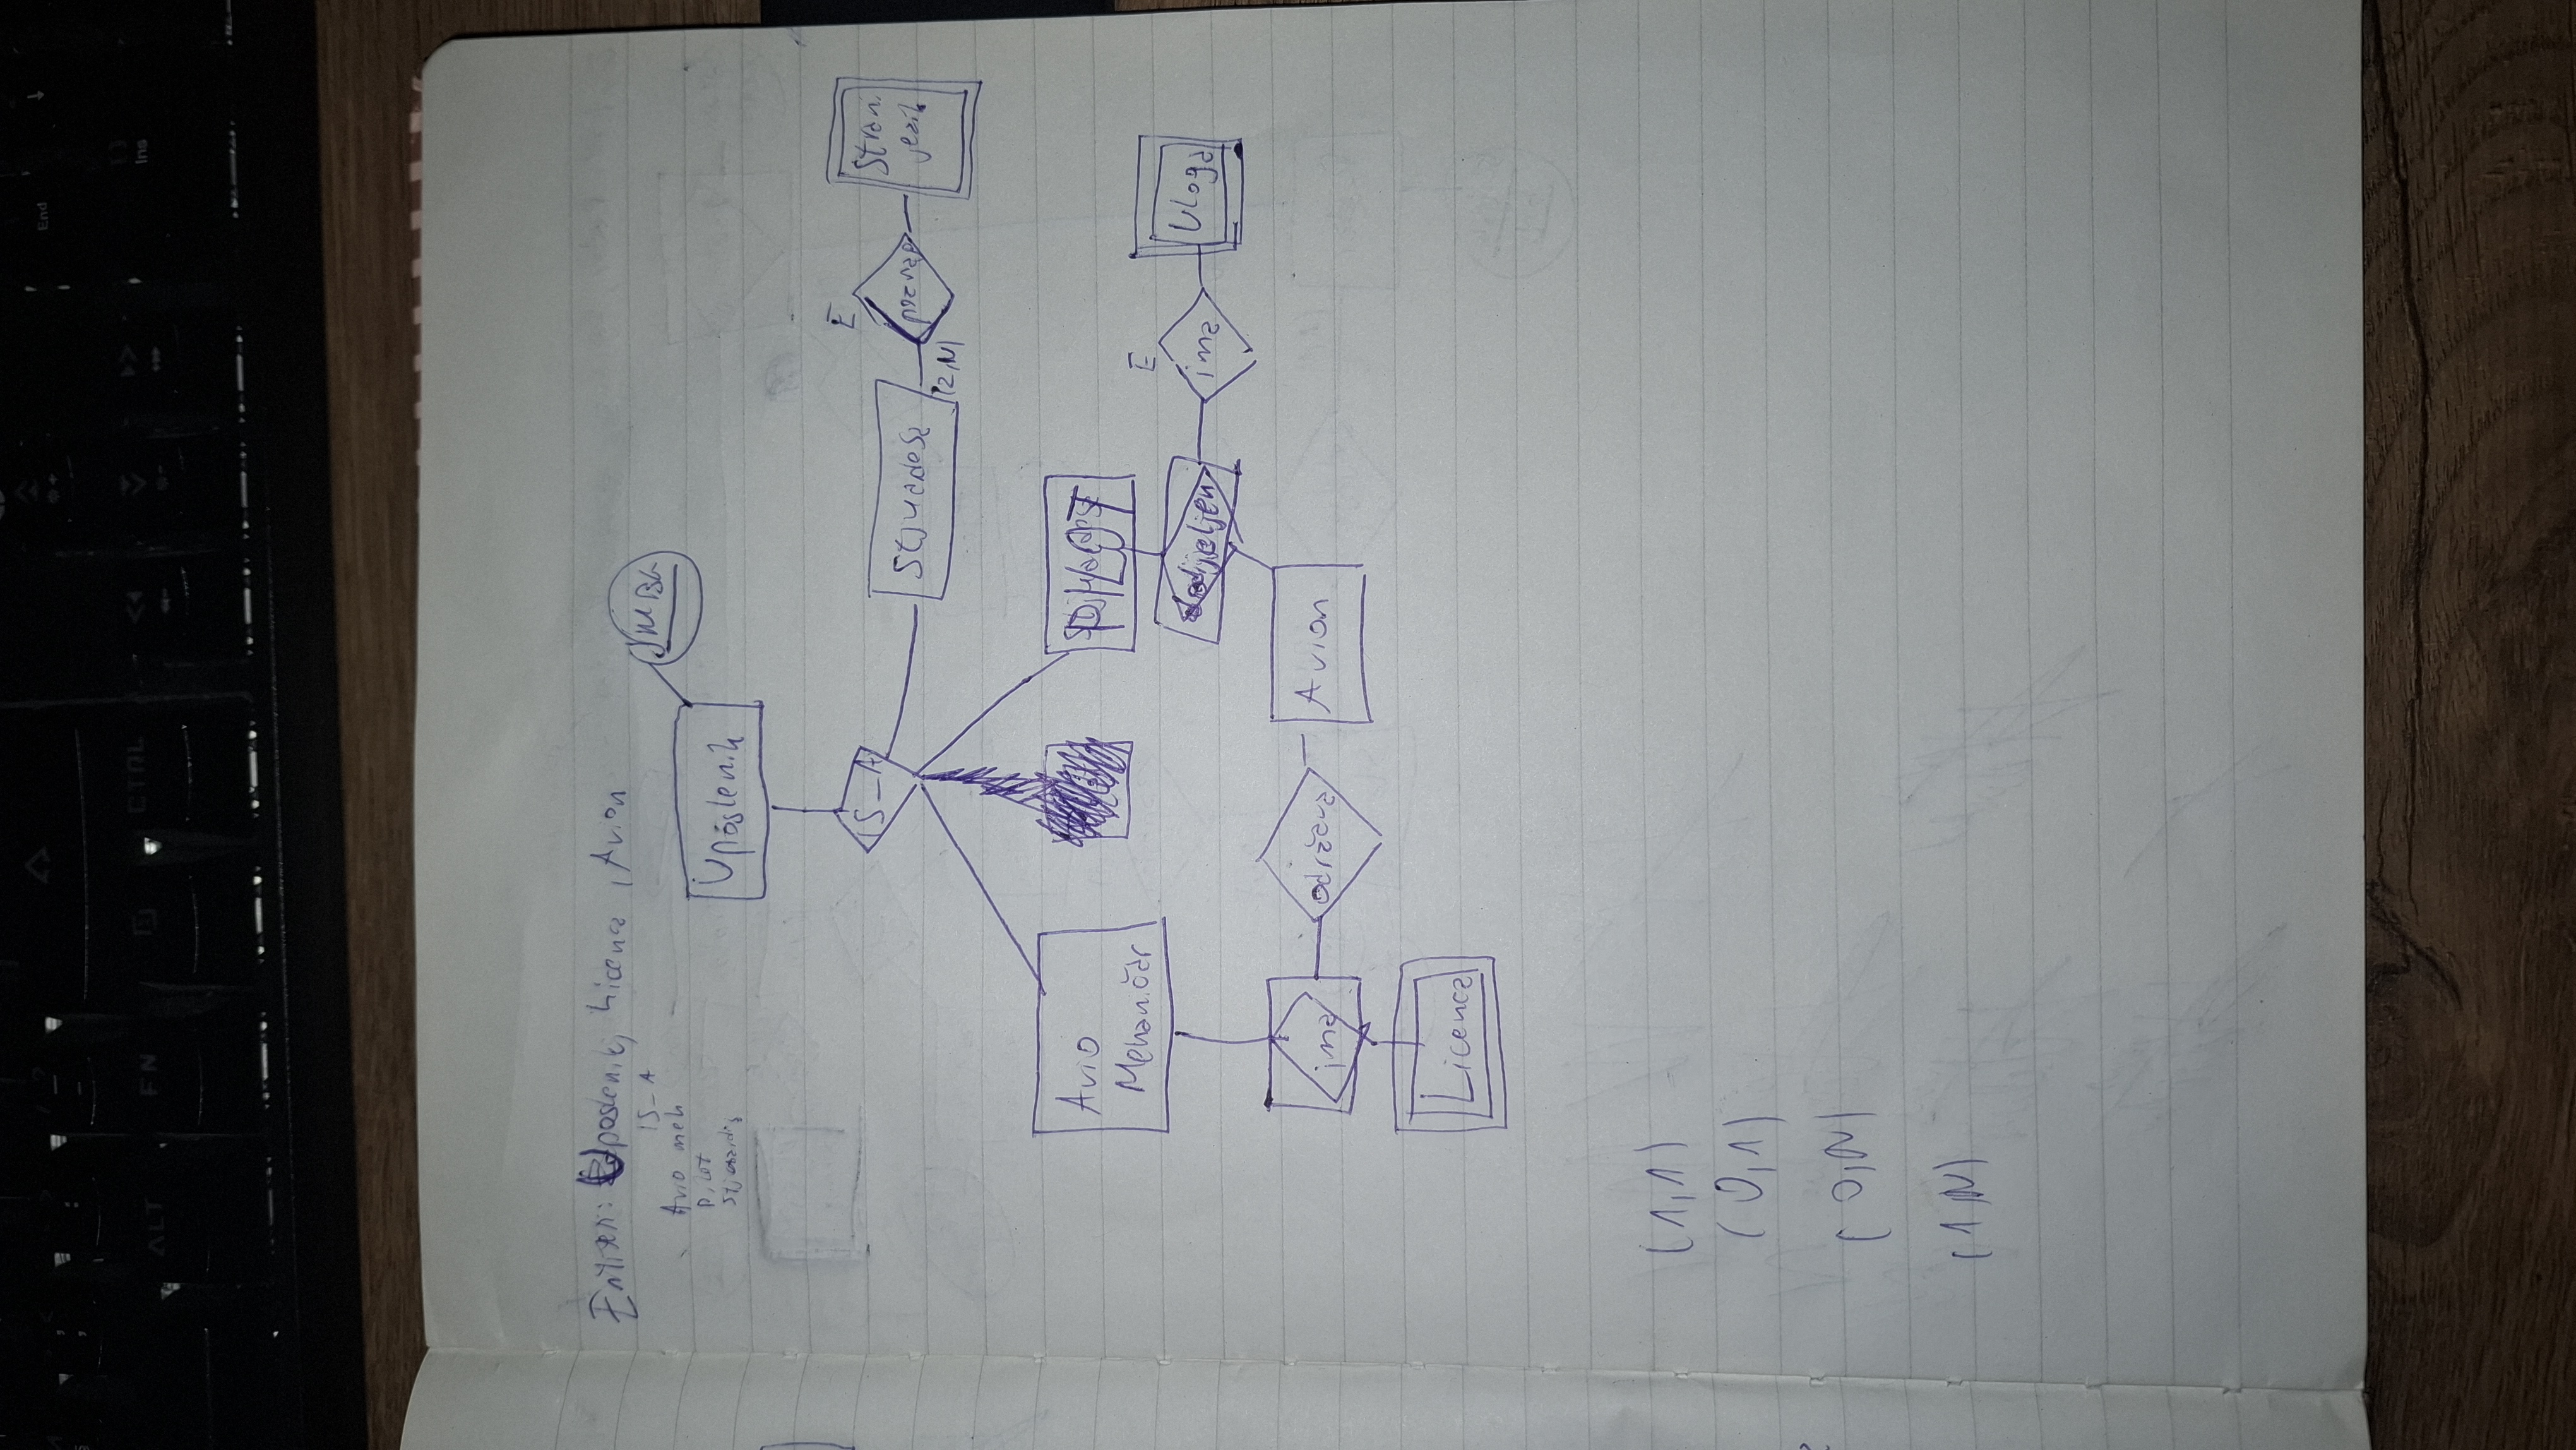 End
ALT
FN
CTRL
Ins
Entiteti: Uposlenik, Licenca, Avion
IS_A
Avio meh
Pilot
Uposlenik
IS_A
Stjuardesa
(2,N)
E
poznaje
Strani
jezik
Avio
Mehaničar
PILOT
dodijeljen
E
ima
Uloga
ima
održava
Avion
Licenca
(1,1)
(0,1)
(0,N)
(1,N)